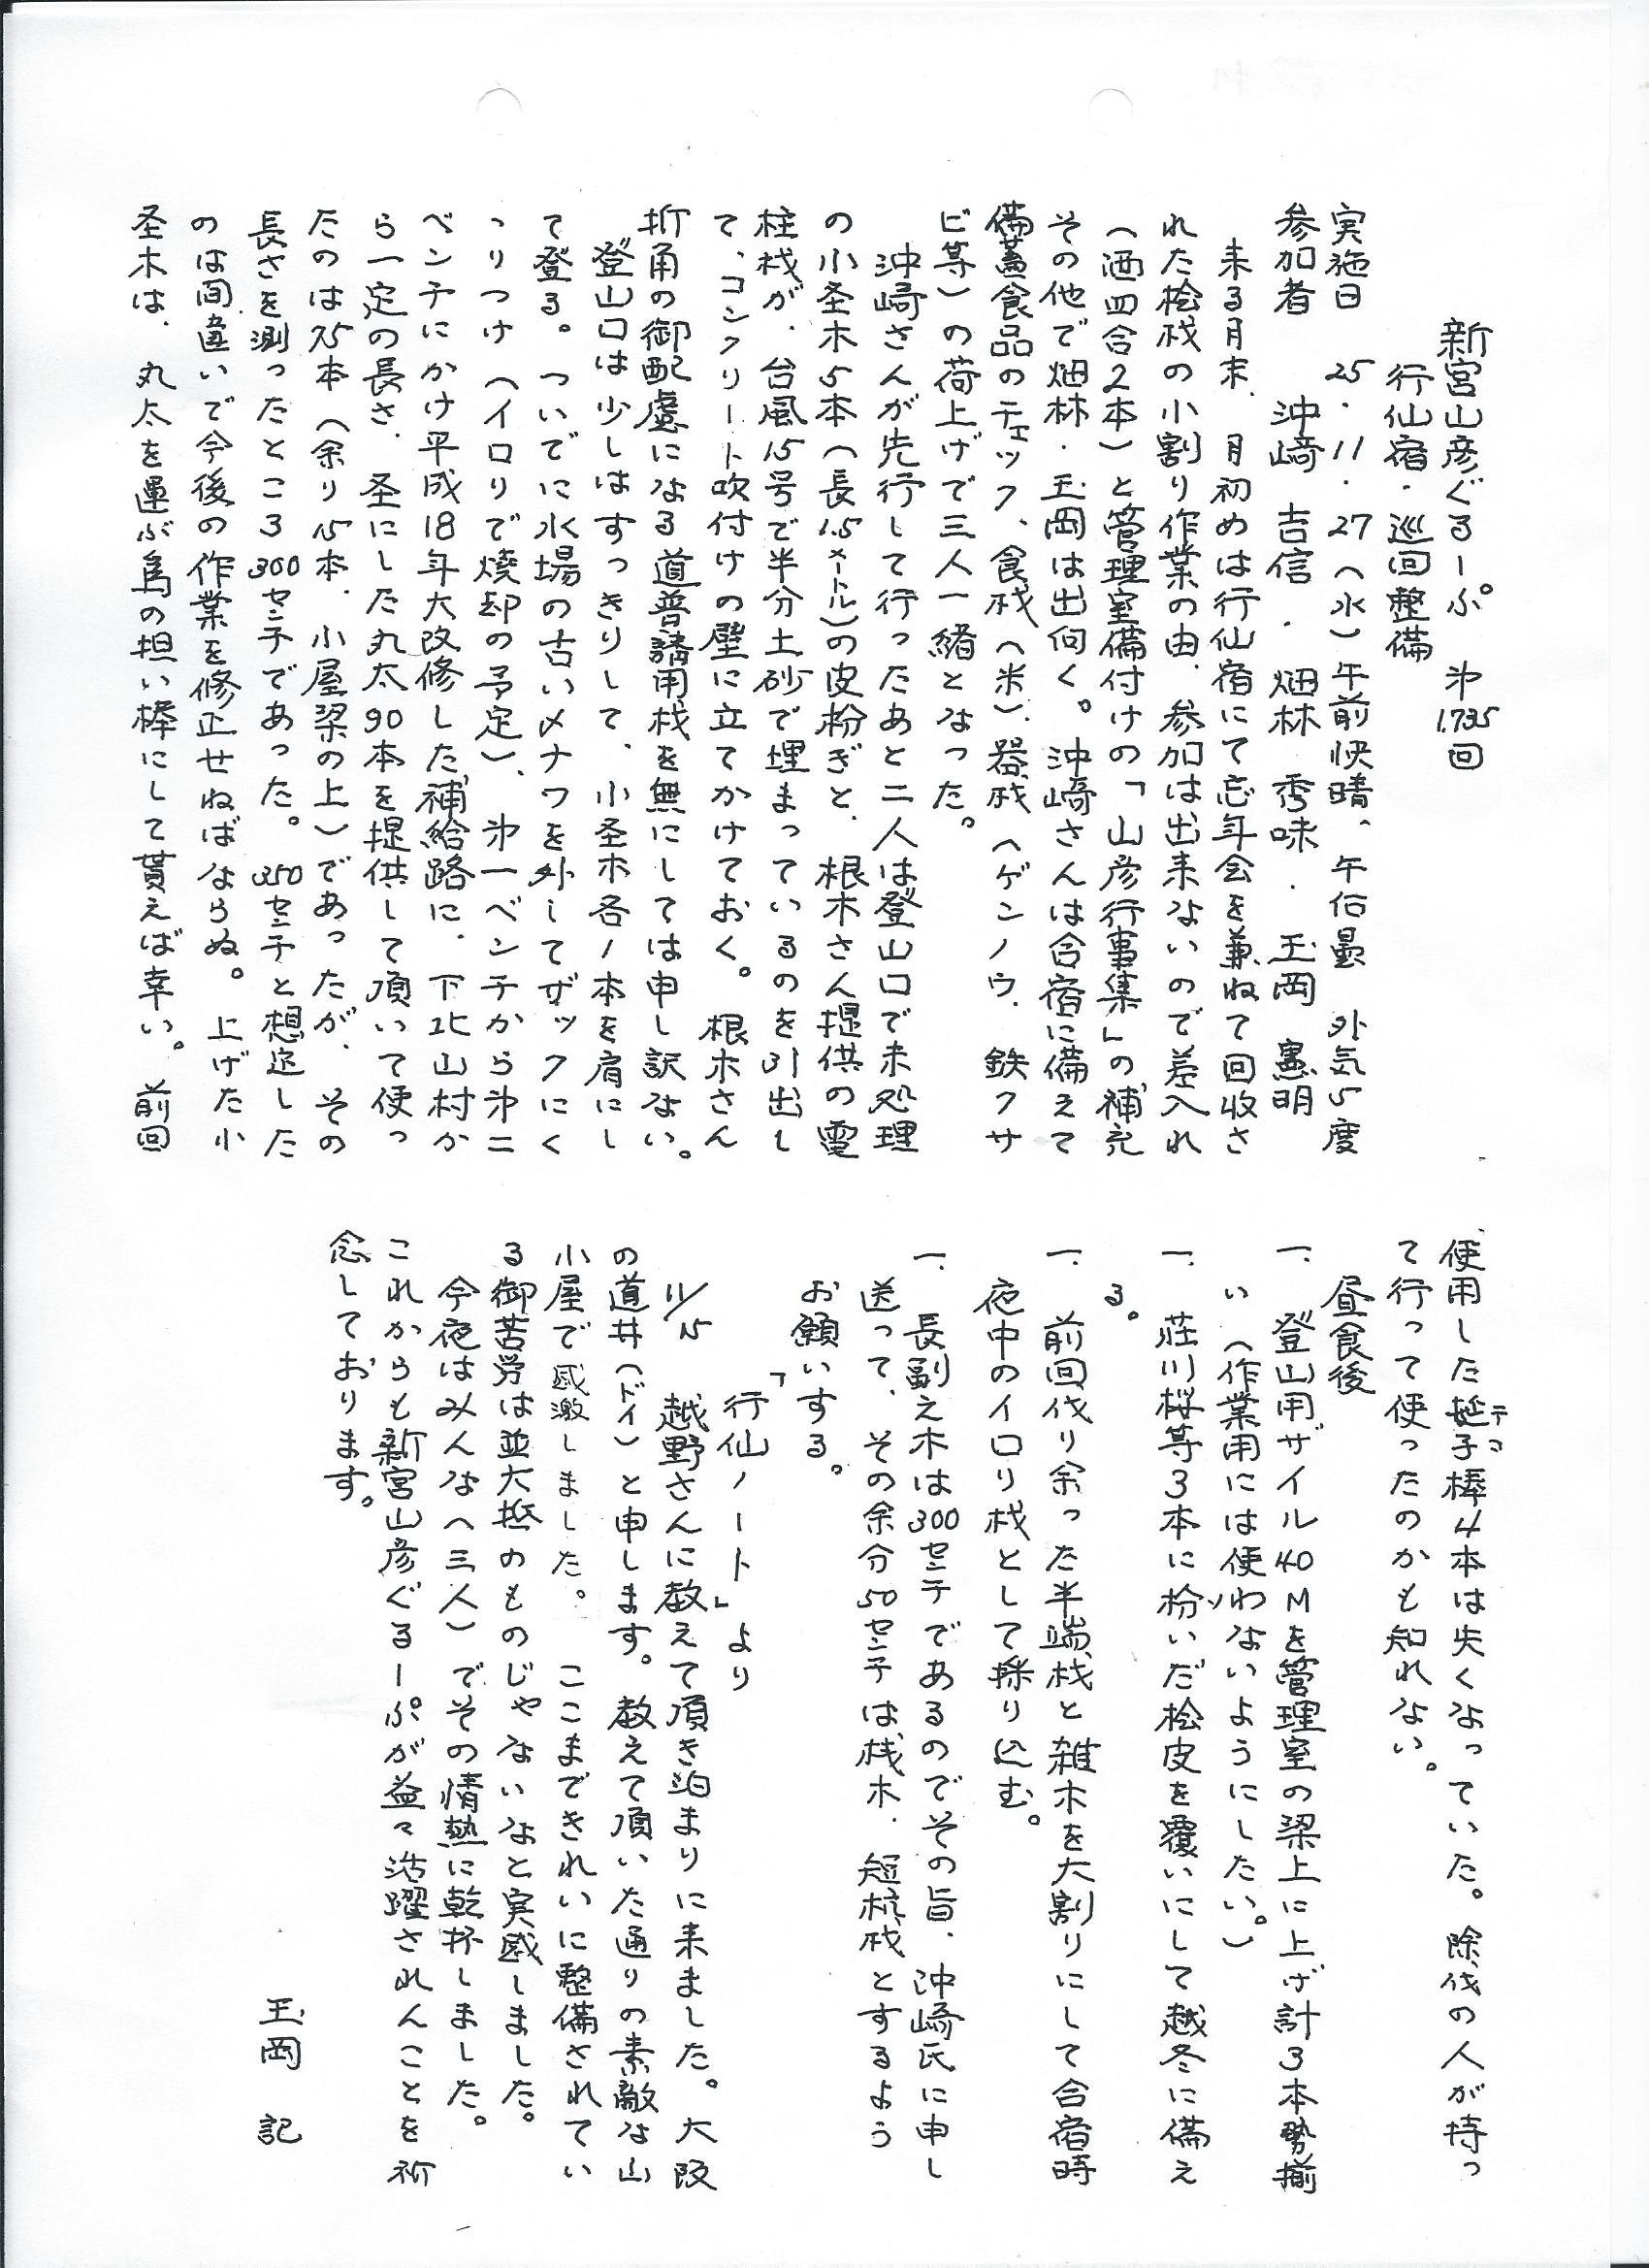 新宮山彦ぐるーぷ 㐧1,735回
行仙宿・巡回整備
実施日 25・11・27(水)午前快晴、午后曇 外気5度
参加者 沖﨑 吉信・畑林 秀味・玉岡 憲明
来る月末、月初めは行仙宿にて忘年会を兼ねて回収さ
れた桧材の小割り作業の由、参加は出来ないので差入れ
(酒四合2本)と管理室備付けの「山彦行事集」の補充
その他で畑林・玉岡は出向く。沖﨑さんは合宿に備えて
備蓄食品のチェック、食材(米)、器材(ゲンノウ、鉄クサ
ビ等)の荷上げで三人一緒となった。
沖﨑さんが先行して行ったあと二人は登山口で未処理
の小丞木5本(長1.5メートル)の皮枌ぎと、根木さん提供の電
柱材が、台風15号で半分土砂で埋まっているのを引出し
て、コンクリート吹付けの壁に立てかけておく。根木さん
折角の御配慮になる道普請用材を無にしては申し訳ない。
登山口は少しはすっきりして、小丞木各1本を肩にし
て登る。ついでに水場の古い〆ナワを外してザックにく
つりつけ(イロリで焼却の予定)、㐧一ベンチから㐧二
ベンチにかけ平成18年大改修した補給路に、下北山村か
ら一定の長さ、丞にした丸太90本を提供して頂いて使っ
たのは75本(余り15本、小屋梁の上)であったが、その
長さを測ったところ300センチであった。350センチと想定した
のは間違いで今後の作業を修正せねばならぬ。上げた小
丞木は、丸太を運ぶ為の担い棒にして貰えば幸い。前回
使用した梃子テコ棒4本は失くなっていた。除伐の人が持っ
て行って使ったのかも知れない。
昼食後
一、登山用ザイル40Mを管理室の梁上に上げ計3本勢揃
い(作業用には使わないようにしたい。)
一、荘川桜等3本に枌ソいだ桧皮を覆いにして越冬に備え
る。
一、前回伐り余った半端材と雑木を大割りにして合宿時
夜中のイロリ材として採り込む。
一、長副え木は300センチであるのでその旨、沖﨑氏に申し
送って、その余分50センチは桟木、短杭材とするよう
お願いする。
「行仙ノート」より
11/15 越野さんに教えて頂き泊まりに来ました。大阪
の道井(ドイ)と申します。教えて頂いた通りの素敵な山
小屋で感激しました。ここまできれいに整備されてい
る御苦労は並大抵のものじゃないなと実感しました。
今夜はみんな(三人)でその情熱に乾杯しました。
これからも新宮山彦ぐるーぷが益々活躍されんことを祈
念しております。
玉岡 記